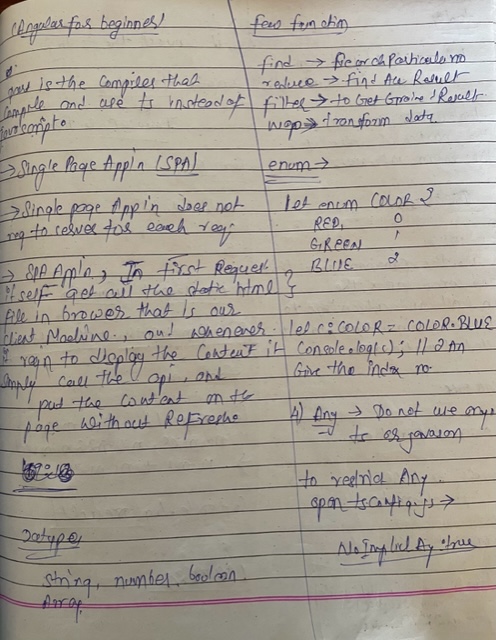 (Angular for beginner)
is the Compiler that
Compile and use ts instead of
Javascript.
→ Single Page Appln (SPA)
→ Single page Appln does not
req to server for each req.
→ SPA Appln, In first Request
itself get all the static html
file in browser that is our
Client Machine, and whenever
reqn to display the Content it
Simply call the api, and
put the content on the
page without Refreshe
Datatype
String, number, boolean
Array,
few function
find → Search Particular no
reduce → find Acc Result
filter → to Get Result
map → transform data
enum →
let enum COLOR {
RED, 0
GREEN 1
BLUE 2
}
let c: COLOR = COLOR.BLUE
Console.log(c); // 2 An
Give the index no.
4) Any → Do not use any
ts or
to restrict Any
open tsconfig.js →
NoImplicitAny: true